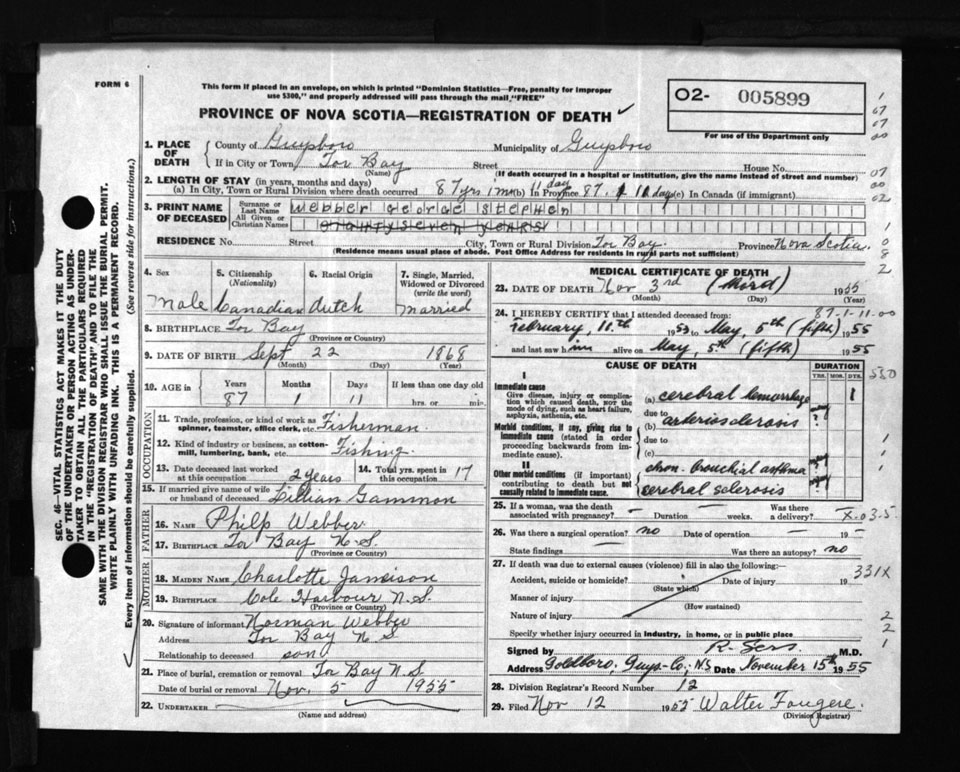 FORM 6
This form if placed in an envelope, on which is printed "Dominion Statistics—Free, penalty for improper
use $300," and properly addressed will pass through the mail "FREE"
PROVINCE OF NOVA SCOTIA—REGISTRATION OF DEATH
O2- 005899
For use of the Department only
SEC. 46—VITAL STATISTICS ACT MAKES IT THE DUTY
OF THE UNDERTAKER OR PERSON ACTING AS UNDER-
TAKER TO OBTAIN ALL THE PARTICULARS REQUIRED
IN THE "REGISTRATION OF DEATH" AND TO FILE THE
SAME WITH THE DIVISION REGISTRAR WHO SHALL ISSUE THE BURIAL PERMIT.
WRITE PLAINLY WITH UNFADING INK. THIS IS A PERMANENT RECORD.
Every item of information should be carefully supplied. (See reverse side for instructions.)
1. PLACE OF DEATH
County of Guysboro Municipality of Guysboro
If in City or Town Tor Bay Street House No.
(Name) (If death occurred in a hospital or institution, give the name instead of street and number)
2. LENGTH OF STAY (in years, months and days)
(a) In City, Town or Rural Division where death occurred 87 yrs 1 m (b) In Province 87. (c) In Canada (if immigrant)
3. PRINT NAME OF DECEASED
Surname or Last Name Webber George Stephen
All Given or Christian Names eighty seven years
RESIDENCE No. Street City, Town or Rural Division Tor Bay. Province Nova Scotia.
(Residence means usual place of abode. Post Office Address for residents in rural parts not sufficient)
4. Sex
Male
5. Citizenship
(Nationality)
Canadian
6. Racial Origin
Dutch
7. Single, Married,
Widowed or Divorced
(write the word)
Married
8. BIRTHPLACE Tor Bay
(Province or Country)
9. DATE OF BIRTH Sept 22 1868
(Month) (Day) (Year)
10. AGE in Years Months Days If less than one day old
87 1 11 hrs. or min.
OCCUPATION
11. Trade, profession, or kind of work as
spinner, teamster, office clerk, etc. Fisherman.
12. Kind of industry or business, as cotton-
mill, lumbering, bank, etc. Fishing.
13. Date deceased last worked
at this occupation 2 years
14. Total yrs. spent in
this occupation 17
15. If married give name of wife
or husband of deceased Lillian Gammon
FATHER
16. NAME Philp Webber
17. BIRTHPLACE Tor Bay N.S.
(Province or Country)
MOTHER
18. MAIDEN NAME Charlotte Jameison
19. BIRTHPLACE Cole Harbour N.S.
(Province or Country)
20. Signature of informant Norman Webber
Address Tor Bay N S
Relationship to deceased son
21. Place of burial, cremation or removal Tor Bay N.S.
Date of burial or removal Nov. 5 1955
22. UNDERTAKER
(Name and address)
MEDICAL CERTIFICATE OF DEATH
23. DATE OF DEATH Nov 3rd (third) 1955
(Month) (Day) (Year)
87-1-11-00
24. I HEREBY CERTIFY that I attended deceased from:
February, 10th 1953 to May, 5th (fifth) 1955
and last saw him alive on May, 5th (fifth) 1955
CAUSE OF DEATH DURATION
YRS. MOS. DYS.
I
Immediate cause
Give disease, injury or complica-
tion which caused death, not the
mode of dying, such as heart failure,
asphyxia, asthenia, etc.
(a) cerebral hemorrhage 1
due to
Morbid conditions, if any, giving rise to
immediate cause (stated in order
proceeding backwards from im-
mediate cause).
(b) arteriosclerosis ?
due to
(c)
II
Other morbid conditions (if important)
contributing to death but not
causally related to immediate cause.
chron. bronchial asthma
cerebral sclerosis
25. If a woman, was the death
associated with pregnancy? — Duration weeks. Was there
a delivery?
X-03-5
26. Was there a surgical operation? no Date of operation 19
State findings Was there an autopsy? no
27. If death was due to external causes (violence) fill in also the following:
Accident, suicide or homicide? Date of injury 19
(State which)
331X
Manner of injury
(How sustained)
Nature of injury
Specify whether injury occurred in industry, in home, or in public place
Signed by R. Sers. M.D.
Address Goldboro, Guys-Co., N.S Date November 15th 1955
28. Division Registrar's Record Number 12
29. Filed Nov 12 1955 Walter Fougere.
(Division Registrar)